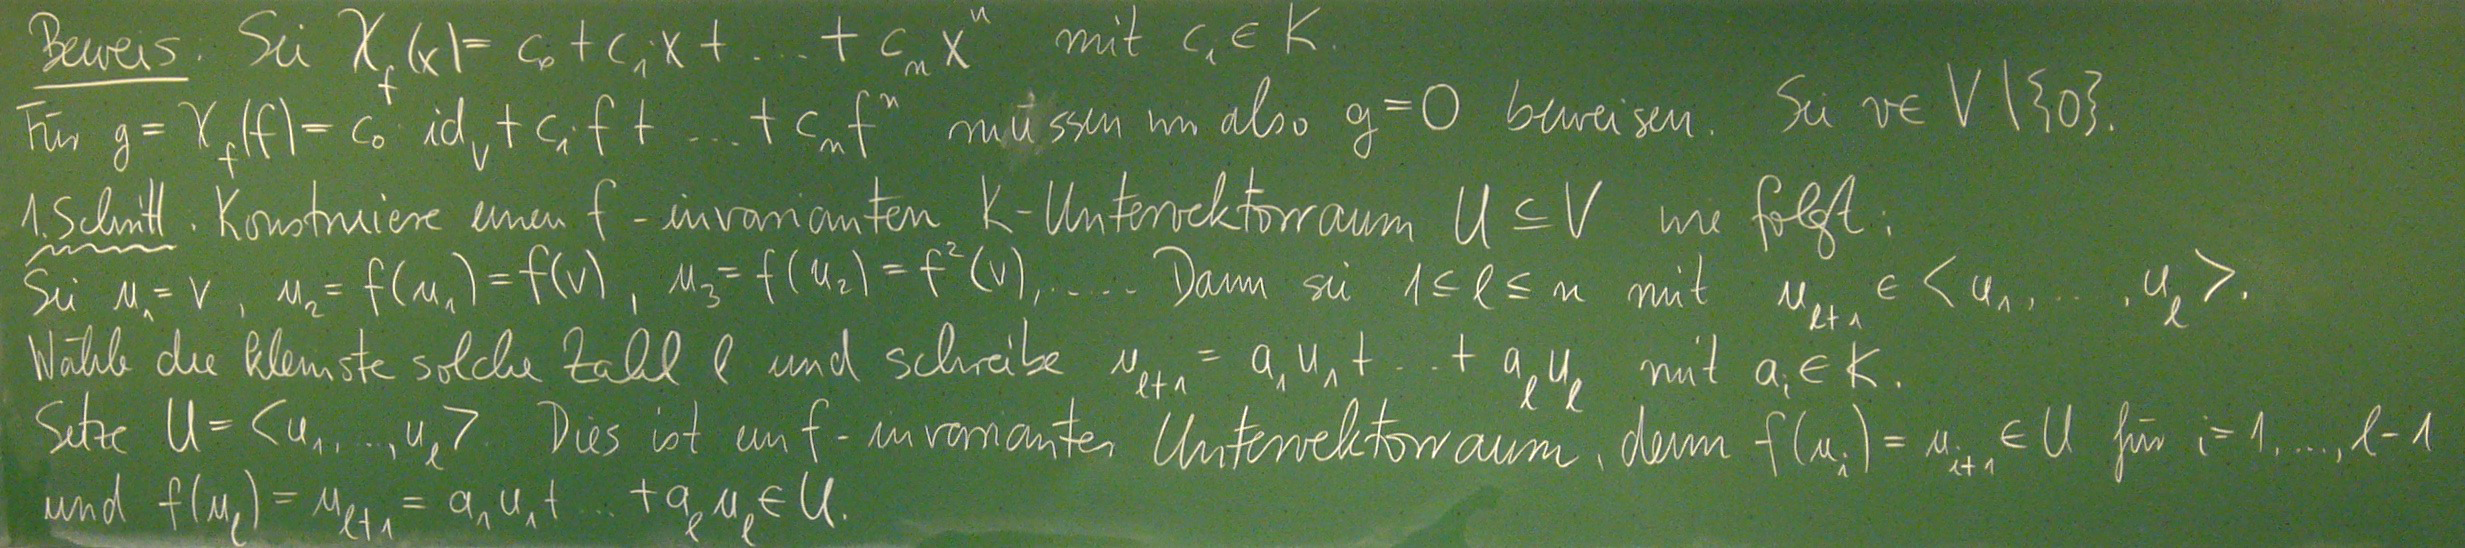 Beweis. Sei χ_f(x) = c₀ + c₁x + ... + c_n xⁿ mit c_i ∈ K.
Für g = χ_f(f) = c₀ · id_V + c₁f + ... + c_n fⁿ müssen wir also g = 0 beweisen. Sei v ∈ V \ {0}.
1. Schritt. Konstruiere einen f-invarianten K-Untervektorraum U ⊆ V wie folgt:
Sei u₁ = v, u₂ = f(u₁) = f(v), u₃ = f(u₂) = f²(v), ..... Dann sei 1 ≤ ℓ ≤ n mit u_{ℓ+1} ∈ <u₁, ..., u_ℓ>.
Wähle die kleinste solche Zahl ℓ und schreibe u_{ℓ+1} = a₁u₁ + ... + a_ℓ u_ℓ mit a_i ∈ K.
Setze U = <u₁, ..., u_ℓ> Dies ist ein f-invarianter Untervektorraum, denn f(u_i) = u_{i+1} ∈ U für i = 1, ..., ℓ-1
und f(u_ℓ) = u_{ℓ+1} = a₁u₁ + ... + a_ℓ u_ℓ ∈ U.